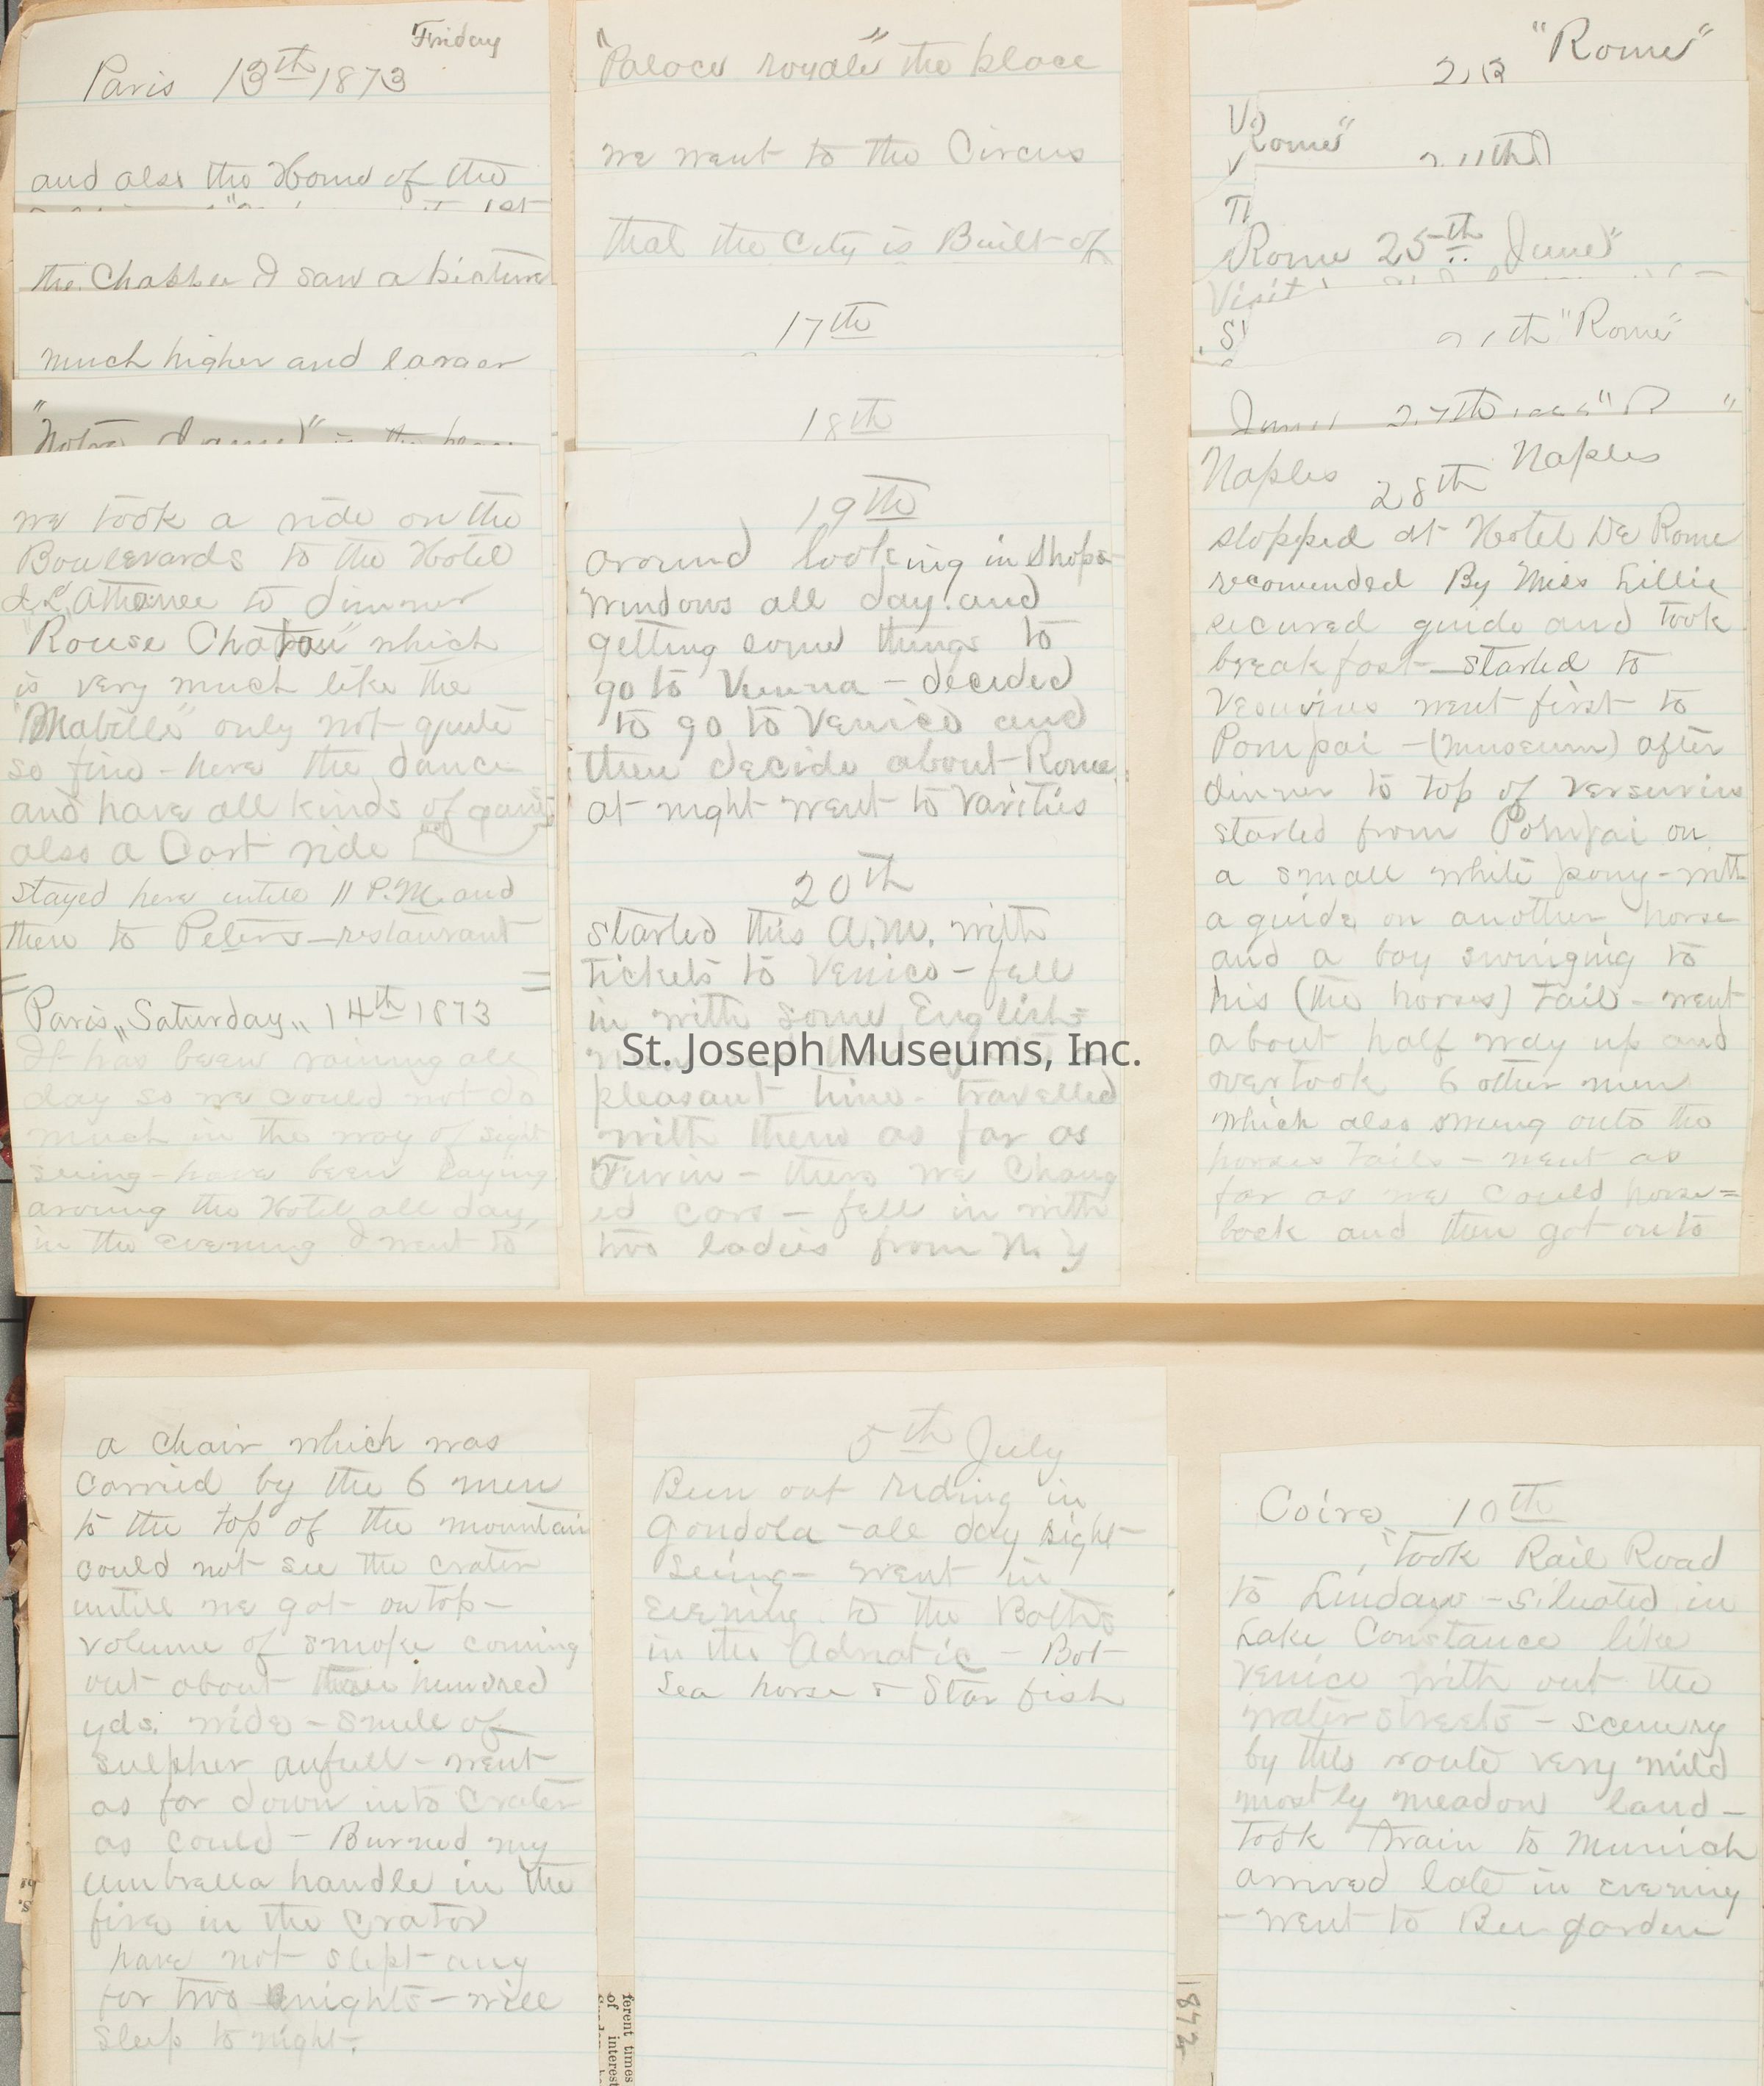 Friday
Paris 13th 1873
and also the Home of the
the Chapple I saw a picture
much higher and larger
"Notre Dame" is the
we took a ride on the
Boulevards to the Hotel
to dinner
"Rouse Chatau" which
is very much like the
"Mabille" only not quite
so fine - here the dance
and have all kinds of games
also a Cart ride
stayed here untill 11 P.M. and
then to Peters - restaurant
Paris „Saturday„ 14th 1873
It has been raining all
day so we could not do
much in the way of sight
seeing - have been laying
aroung the Hotel all day,
in the evening I went to
"Palace royale" the place
we went to the Circus
that the City is Built of
17th
18th
19th
around looking in Shops
windows all day. and
getting some things to
go to Vienna - decided
to go to Venice and
then decide about Rome
at night went to Varities
20th
started this A.M. with
tickets to Venice - fell
in with some English=
pleasant time. travelled
with them as far as
Turin - there we Chang
ed cars - fell in with
two ladies from N. Y
"Rome"
Rome"
Rome 25th June"
Visit
"Rome"
27th
Naples 28th Naples
stopped at Hotel De Rome
recomended By Miss Lillie
secured guide and took
breakfast - started to
Vesuvius went first to
Pompai - (museum) after
dinner to top of Versuvius
started from Pompai on
a small white pony - with
a guide on another horse
and a boy swinging to
his (the horses) tail - went
about half way up and
overtook 6 other men
which also swung onto the
horses tails - went as
far as we could horse=
back and then got onto
a chair which was
carried by the 6 men
to the top of the mountain
could not see the crater
untill we got on top -
volume of smoke coming
out about three hundred
yds. wide - smell of
sulpher aufull - went
as far down into Crater
as could - Burned my
umbrella handle in the
fire in the Crator
have not slept any
for two nights - will
sleep to night.
5th July
Been out riding in
Gondola - all day sight
Seeing - went in
evening to the Baths
in the Adriatic - Bot
Sea horse & Star fish
Coire 10th
took Rail Road
to Lindaw - situated in
Lake Constance like
Venice with out the
water streets - scenery
by this route very mild
mostly meadow land -
took train to Munich
arrived late in evening
- went to Beer garden
ferent times
of interest
1872
St. Joseph Museums, Inc.